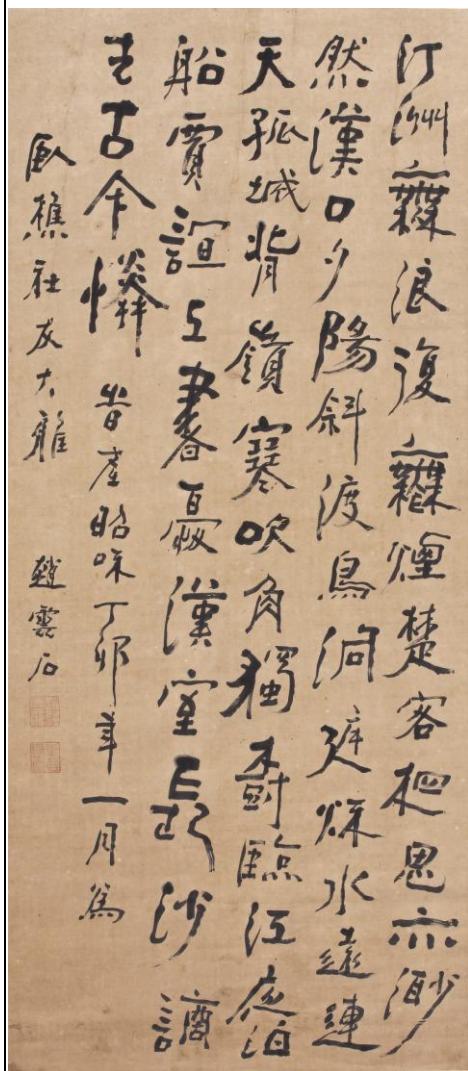 汀洲無浪復無煙楚客相思亦渺
然漢口夕陽斜渡鳥洞庭秋水遠連
天孤城背嶺寒吹角獨樹臨江夜泊
船賈誼上書憂漢室長沙謫
去古今憐 旹在昭和丁卯年一月為
臥樵社友大雅 趙雲石